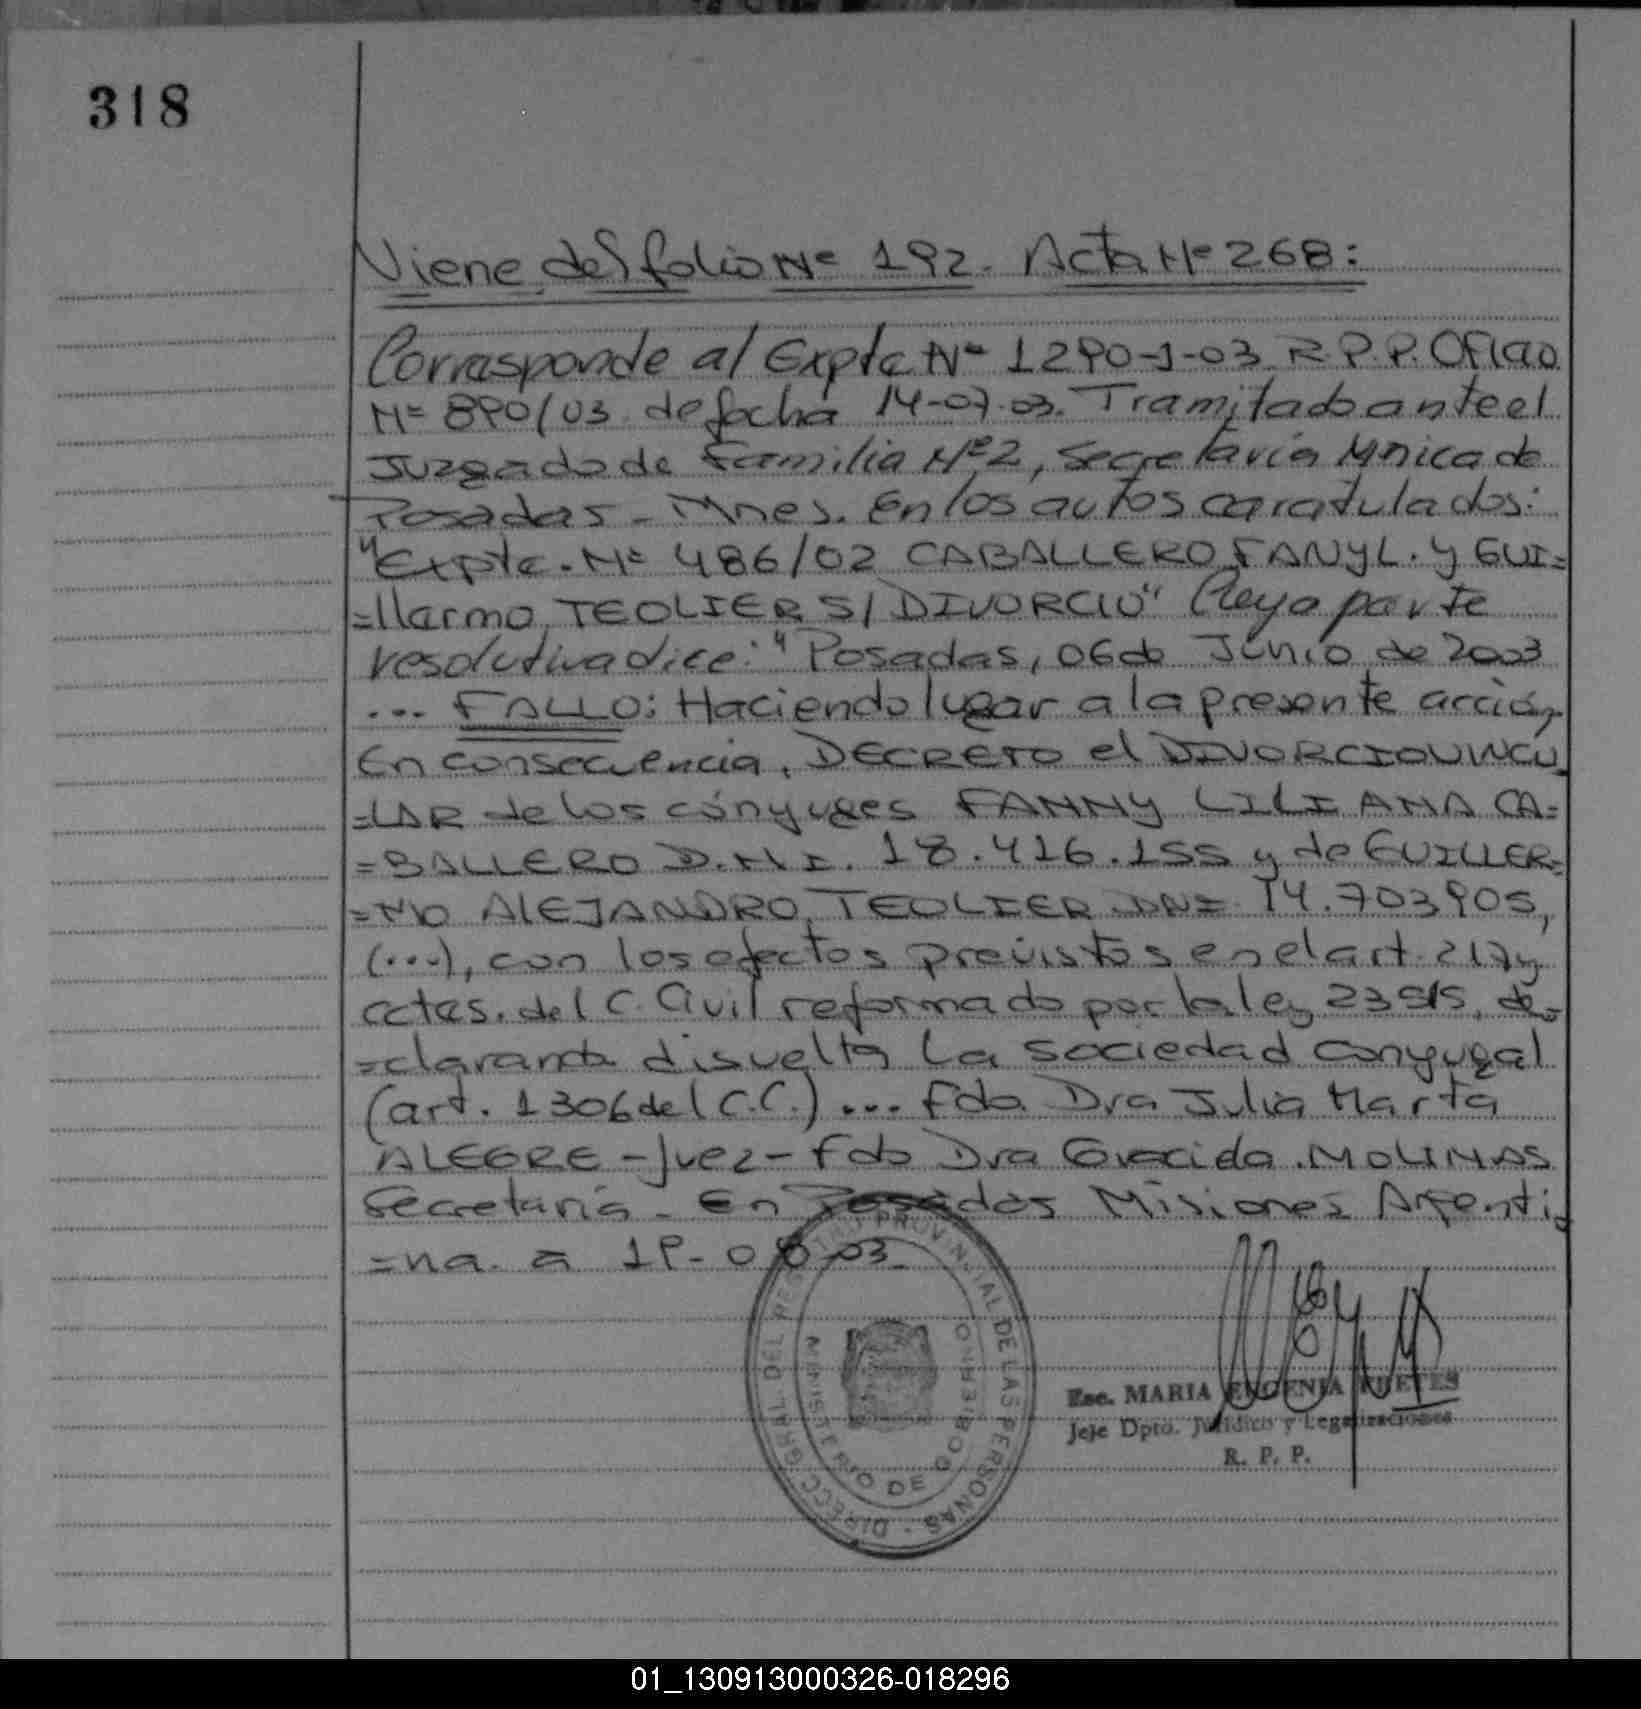 318
Viene del folio Nº 192. Acta Nº 268:
Corresponde al Expte Nº 1290-J-03 R.P.P. Oficio
Nº 890/03 de fecha 14-07-03. Tramitado ante el
Juzgado de Familia Nº 2, Secretaría Única de
Posadas - Mnes. En los autos caratulados:
"Expte. Nº 486/02 CABALLERO FANY L. y GUI=
=llermo TEOLIER S/ DIVORCIO" Cuya parte
resolutiva dice: "Posadas, 06 de Junio de 2003
... FALLO: Haciendo lugar a la presente acción,
En consecuencia, DECRETO el DIVORCIO VINCU
=LAR de los cónyuges FANNY LILIANA CA=
=BALLERO D.N.I. 18.416.155 y de GUILLER=
=MO ALEJANDRO TEOLIER DNI 14.703905,
(...), con los efectos previstos en el art. 217 y
cctes. del C. Civil reformado por la ley 23515, de=
=clarando disuelta La sociedad conyugal
(art. 1306 del C.C.) ... Fdo Dra Julia Marta
ALEGRE - Juez - Fdo Dra Gracida MOLINAS
Secretaria - En Posadas Misiones Argenti=
=na. a 19-08-03
DIRECC. GRAL. DEL REGISTRO PROVINCIAL DE LAS PERSONAS
MINISTERIO DE GOBIERNO
Esc. MARIA EUGENIA
Jefe Dpto. Jurídico y Legalizaciones
R. P. P.
01_130913000326-018296